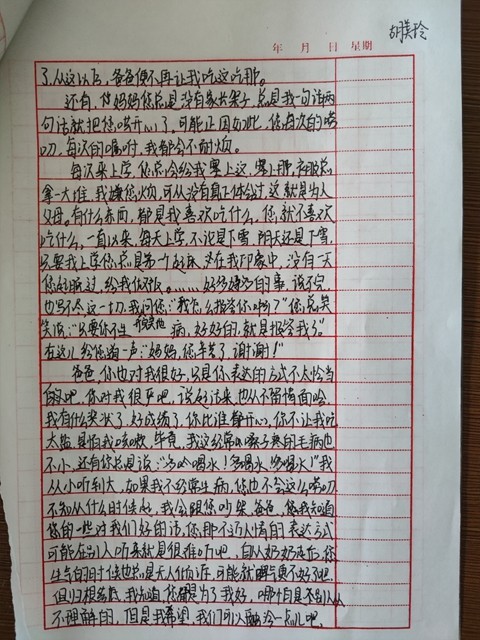 胡美玲
年 月 日 星期
了,从这以后,爸爸便不再让我吃这吃那。
还有,你妈妈您总是没有家长架子,总是我一句话两
句话就把您哄开心了。可能正因如此,您每次的唠
叨,每次的嘱咐,我都会不耐烦。
每次来上学,您总会给我塞上这,塞那,衣服总
拿一大堆,我嫌您烦,可从没有真正体会过这就是为人
父母。有什么东西,都是我喜欢吃什么,您就不喜欢
吃什么,一直以来,每天上学,不论是下雪,阴天还是下雪,
只要我上学您总是第一个起床,在我印象中,没有一天
您好睡过,给我做饭。……好多好多的事,说不完,
也写不尽这一切,我问您:“我怎么报答你啊?”您总笑
笑说:“只要你不生 病,好好的,就是报答我了”
在这儿给您道一声:“妈妈,您辛苦了,谢谢!”
爸爸,你也对我很好,只是你表达的方式不太恰当
的吧,你对我很严吧,说好话来,也从不留情面哈,
我有什么奖状了,好成绩了,你比谁都开心,你不让我吃
太盐,是怕我咳嗽,毕竟,我这经常嗓子疼的毛病也
不小,还有你总是说:“多吆喝水!多喝水,多喝水”我
从小听到大,如果我不经常生病,您也不会这么唠叨,
不知从什么时候起,我会跟您吵架,爸爸,您我知道
您的一些对我们好的话,您那不近人情的表达方式
可能在别人听来就是很难听吧,自从奶奶走后,您
生气的时候也总是无人倾诉,可能就脾气更不好了吧,
但归根结底,我知道,您都是为了我好,哪怕是不别人从
不理解的,但是我希望,我们可以融洽一点儿吧。